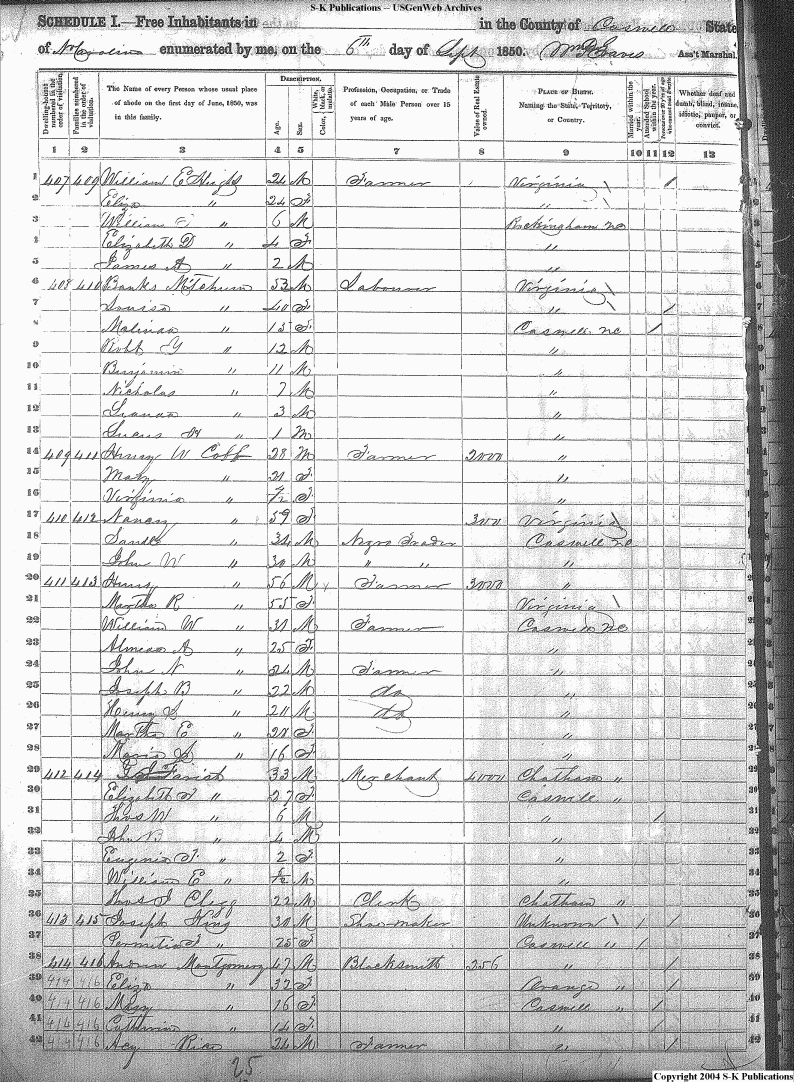 S-K Publications -- USGenWeb Archives
SCHEDULE I.—Free Inhabitants in in the County of Caswell State
of N Carolina enumerated by me, on the 6th day of Sept 1850. Ass't Marshal.
Dwelling-houses numbered in the order of visitation.
Families numbered in the order of visitation.
The Name of every Person whose usual place of abode on the first day of June, 1850, was in this family.
DESCRIPTION.
Age.
Sex.
Color, White, black, or mulatto.
Profession, Occupation, or Trade of each Male Person over 15 years of age.
Value of Real Estate owned.
PLACE OF BIRTH. Naming the State, Territory, or Country.
Married within the year.
Attended School within the year.
Persons over 20 y'rs of age who cannot read & write.
Whether deaf and dumb, blind, insane, idiotic, pauper, or convict.
1 2 3 4 5 6 7 8 9 10 11 12 13
1 407 409 William E 24 M Farmer Virginia /
2 Eliza " 24 F "
3 William " 6 M Rockingham NC
4 Elizabeth D " 4 F "
5 James A " 2 M "
6 408 410 Banks Mitchum 53 M Labourer Virginia
7 Louisa " 40 F " /
8 " 15 F Caswell NC /
9 Robt Y " 12 M "
10 Benjamin " 11 M "
11 Nicholas " 7 M "
12 " 3 M "
13 " 1 M "
14 409 411 Henry W Cobb 28 M Farmer 2000 "
15 Mary " 21 F "
16 Virginia " F "
17 410 412 Nancy " 59 F 300 Virginia
18 " 34 M Negro Trader Caswell NC
19 John W " 30 M " " "
20 411 413 Henry " 56 M Farmer 3000 "
21 Martha R " 55 F Virginia
22 William W " 31 M Farmer Caswell NC
23 A " 25 F "
24 John N " 24 M Farmer "
25 Joseph B " 22 M do "
26 Henry S " 21 M do "
27 Martha E " 20 F "
28 " 16 F "
29 412 414 Farish 33 M Merchant 4000 Chatham "
30 Elizabeth F " 27 F Caswell "
31 Thos W " 6 M " /
32 John B " 4 M "
33 Eugenia F " 2 F "
34 William E " M "
35 Thos J Clegg 22 M Clerk Chatham "
36 413 415 Joseph King 30 M Shoe-maker Unknown / /
37 " 25 F Caswell " /
38 414 416 Andrew Montgomery 47 M Blacksmith 256 " /
39 414 416 Eliza " 32 F Orange " /
40 414 416 Mary " 16 F Caswell " /
41 414 416 Catherine " 14 F " /
42 414 416 Rice 24 M Farmer " /
25
Copyright 2004 S-K Publications